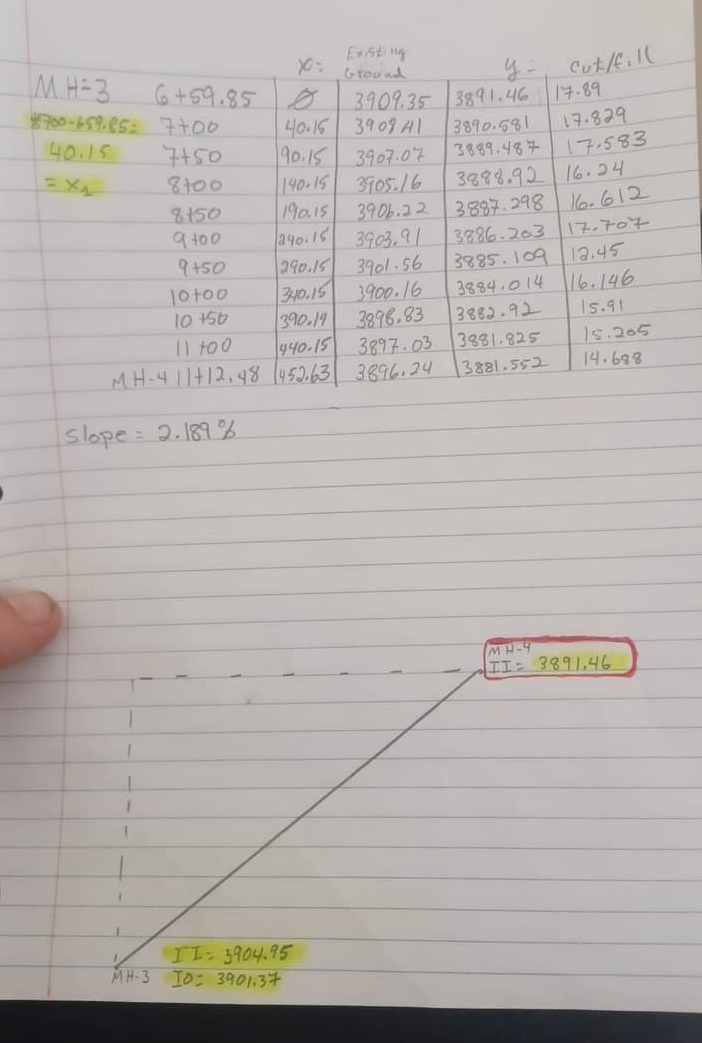 x= Existing Ground y= cut/fill
MH=3 6+59.85 Ø 3909.35 3891.46 17.89
700-659.85= 7+00 40.15 3908.41 3890.581 17.829
40.15 7+50 90.15 3907.07 3889.487 17.583
= x₁ 8+00 140.15 3905.16 3888.92 16.24
8+50 190.15 3906.22 3887.298 16.612
9+00 240.15 3903.91 3886.203 17.707
9+50 290.15 3901.56 3885.109 12.45
10+00 340.15 3900.16 3884.014 16.146
10+50 390.19 3898.83 3882.92 15.91
11+00 440.15 3897.03 3881.825 15.205
MH-4 11+12.48 452.63 3896.24 3881.552 14.688
slope = 2.189%
MH-4
II= 3891.46
II= 3904.95
MH-3 IO= 3901.37